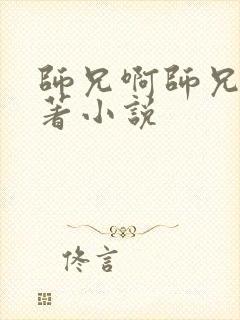 師兄啊師兄
著小說
佟言